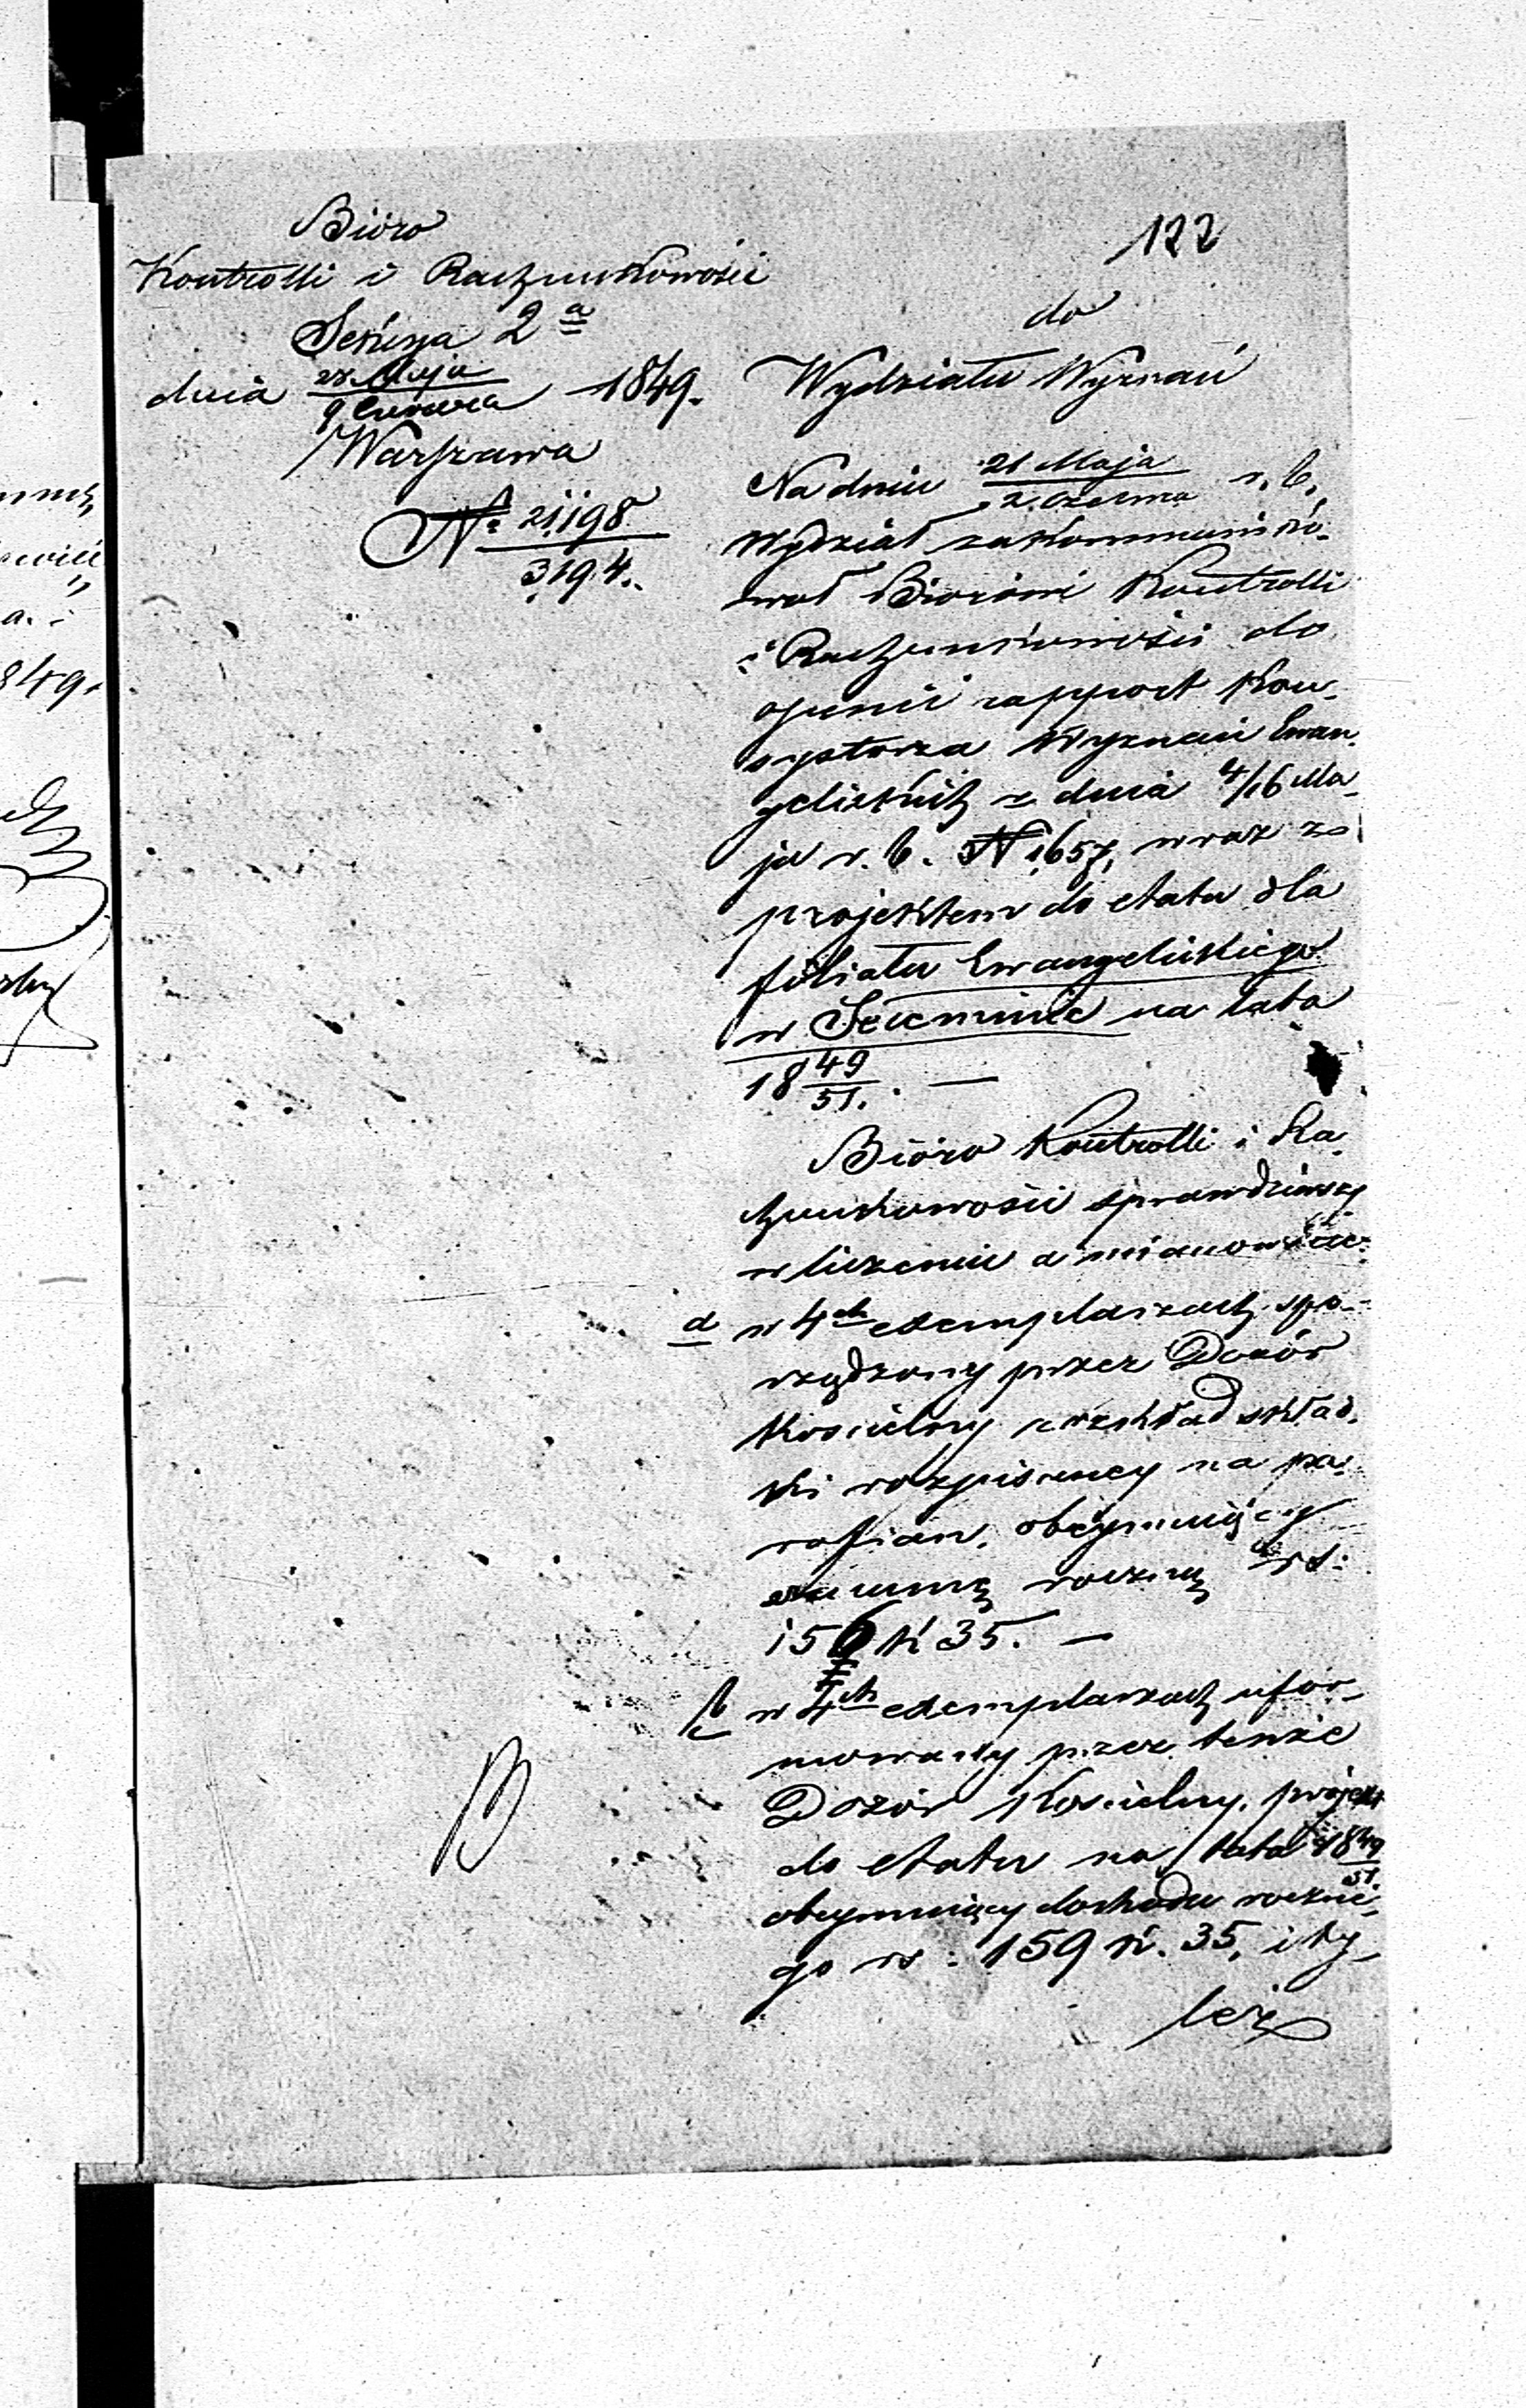 122
Bióro
Kontrolli i Rachunkowości
Sekcya 2ª
dnia 28 Maja / 9 Czerwca 1849.
Warszawa
N° 21198 / 3194.
do
Wydziału Wyznań
Na dniu 21 Maja / 2 Czerwca r. b.
Wydział zakommuniko-
wał Biórowi Kontrolli
i Rachunkowości do
opinii rapport Kon-
systorza Wyznań Ewan-
gelickich z dnia 4/16 Ma-
ja r. b. N 1657, wraz z
projektem do etatu dla
filiału Ewangelickiego
w na lata
18 49/51. —
Bióro Kontrolli i Ra-
chunkowości sprawdziwszy
w liczeniu a mianowicie:
a w 4ch exemplarzach spo-
rządzony przez Dozór
Kościelny rozkład skład-
ki rozpisanej na pa-
rafian, obejmujący
summę roczną rs:
156 k 35. —
b w 4ch exemplarzach ufor-
mowany przez tenże
Dozór Kościelny projekt
do etatu na lata 18 49/51
obejmujący dochodu roczne-
go rs: 159 k. 35, i ty-
leż
1849.